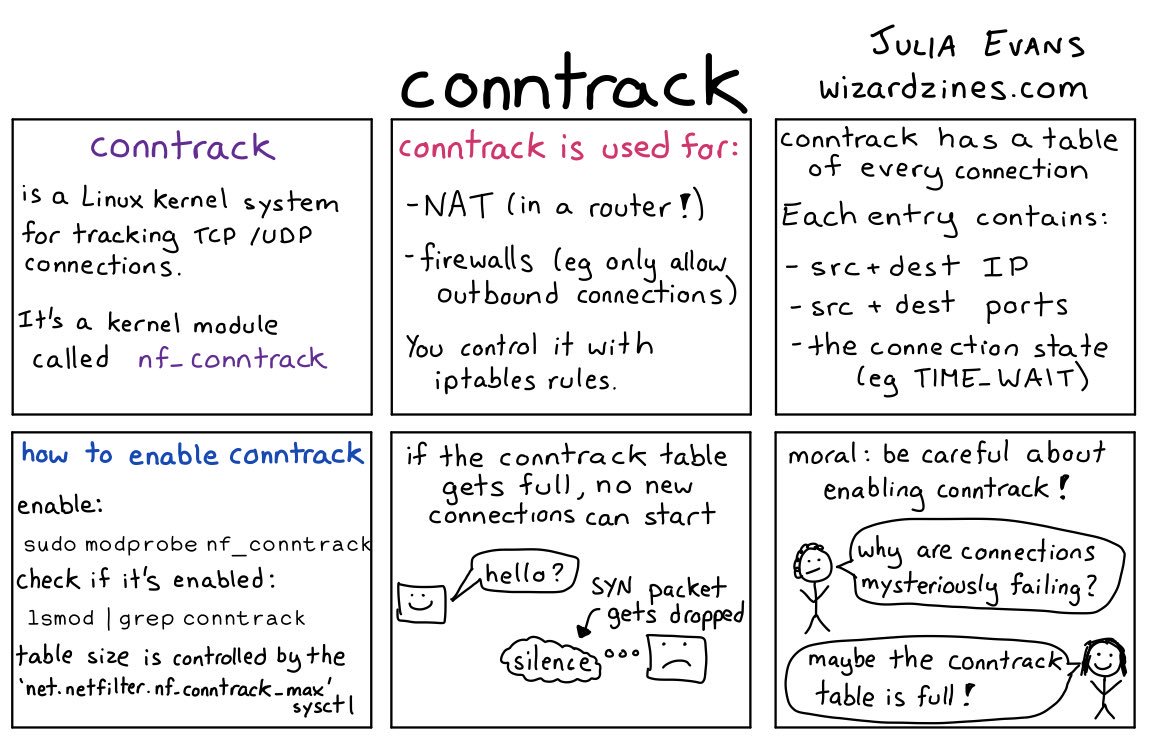 JULIA EVANS
wizardzines.com
conntrack
conntrack
is a Linux kernel system
for tracking TCP /UDP
connections.
It's a kernel module
called nf_conntrack
conntrack is used for:
- NAT (in a router!)
- firewalls (eg only allow
outbound connections)
You control it with
iptables rules.
conntrack has a table
of every connection
Each entry contains:
- src + dest IP
- src + dest ports
- the connection state
(eg TIME_WAIT)
how to enable conntrack
enable:
sudo modprobe nf_conntrack
check if it's enabled:
lsmod | grep conntrack
table size is controlled by the
'net.netfilter.nf_conntrack_max'
sysctl
if the conntrack table
gets full, no new
connections can start
hello?
SYN packet
gets dropped
silence
moral: be careful about
enabling conntrack!
why are connections
mysteriously failing?
maybe the conntrack
table is full!